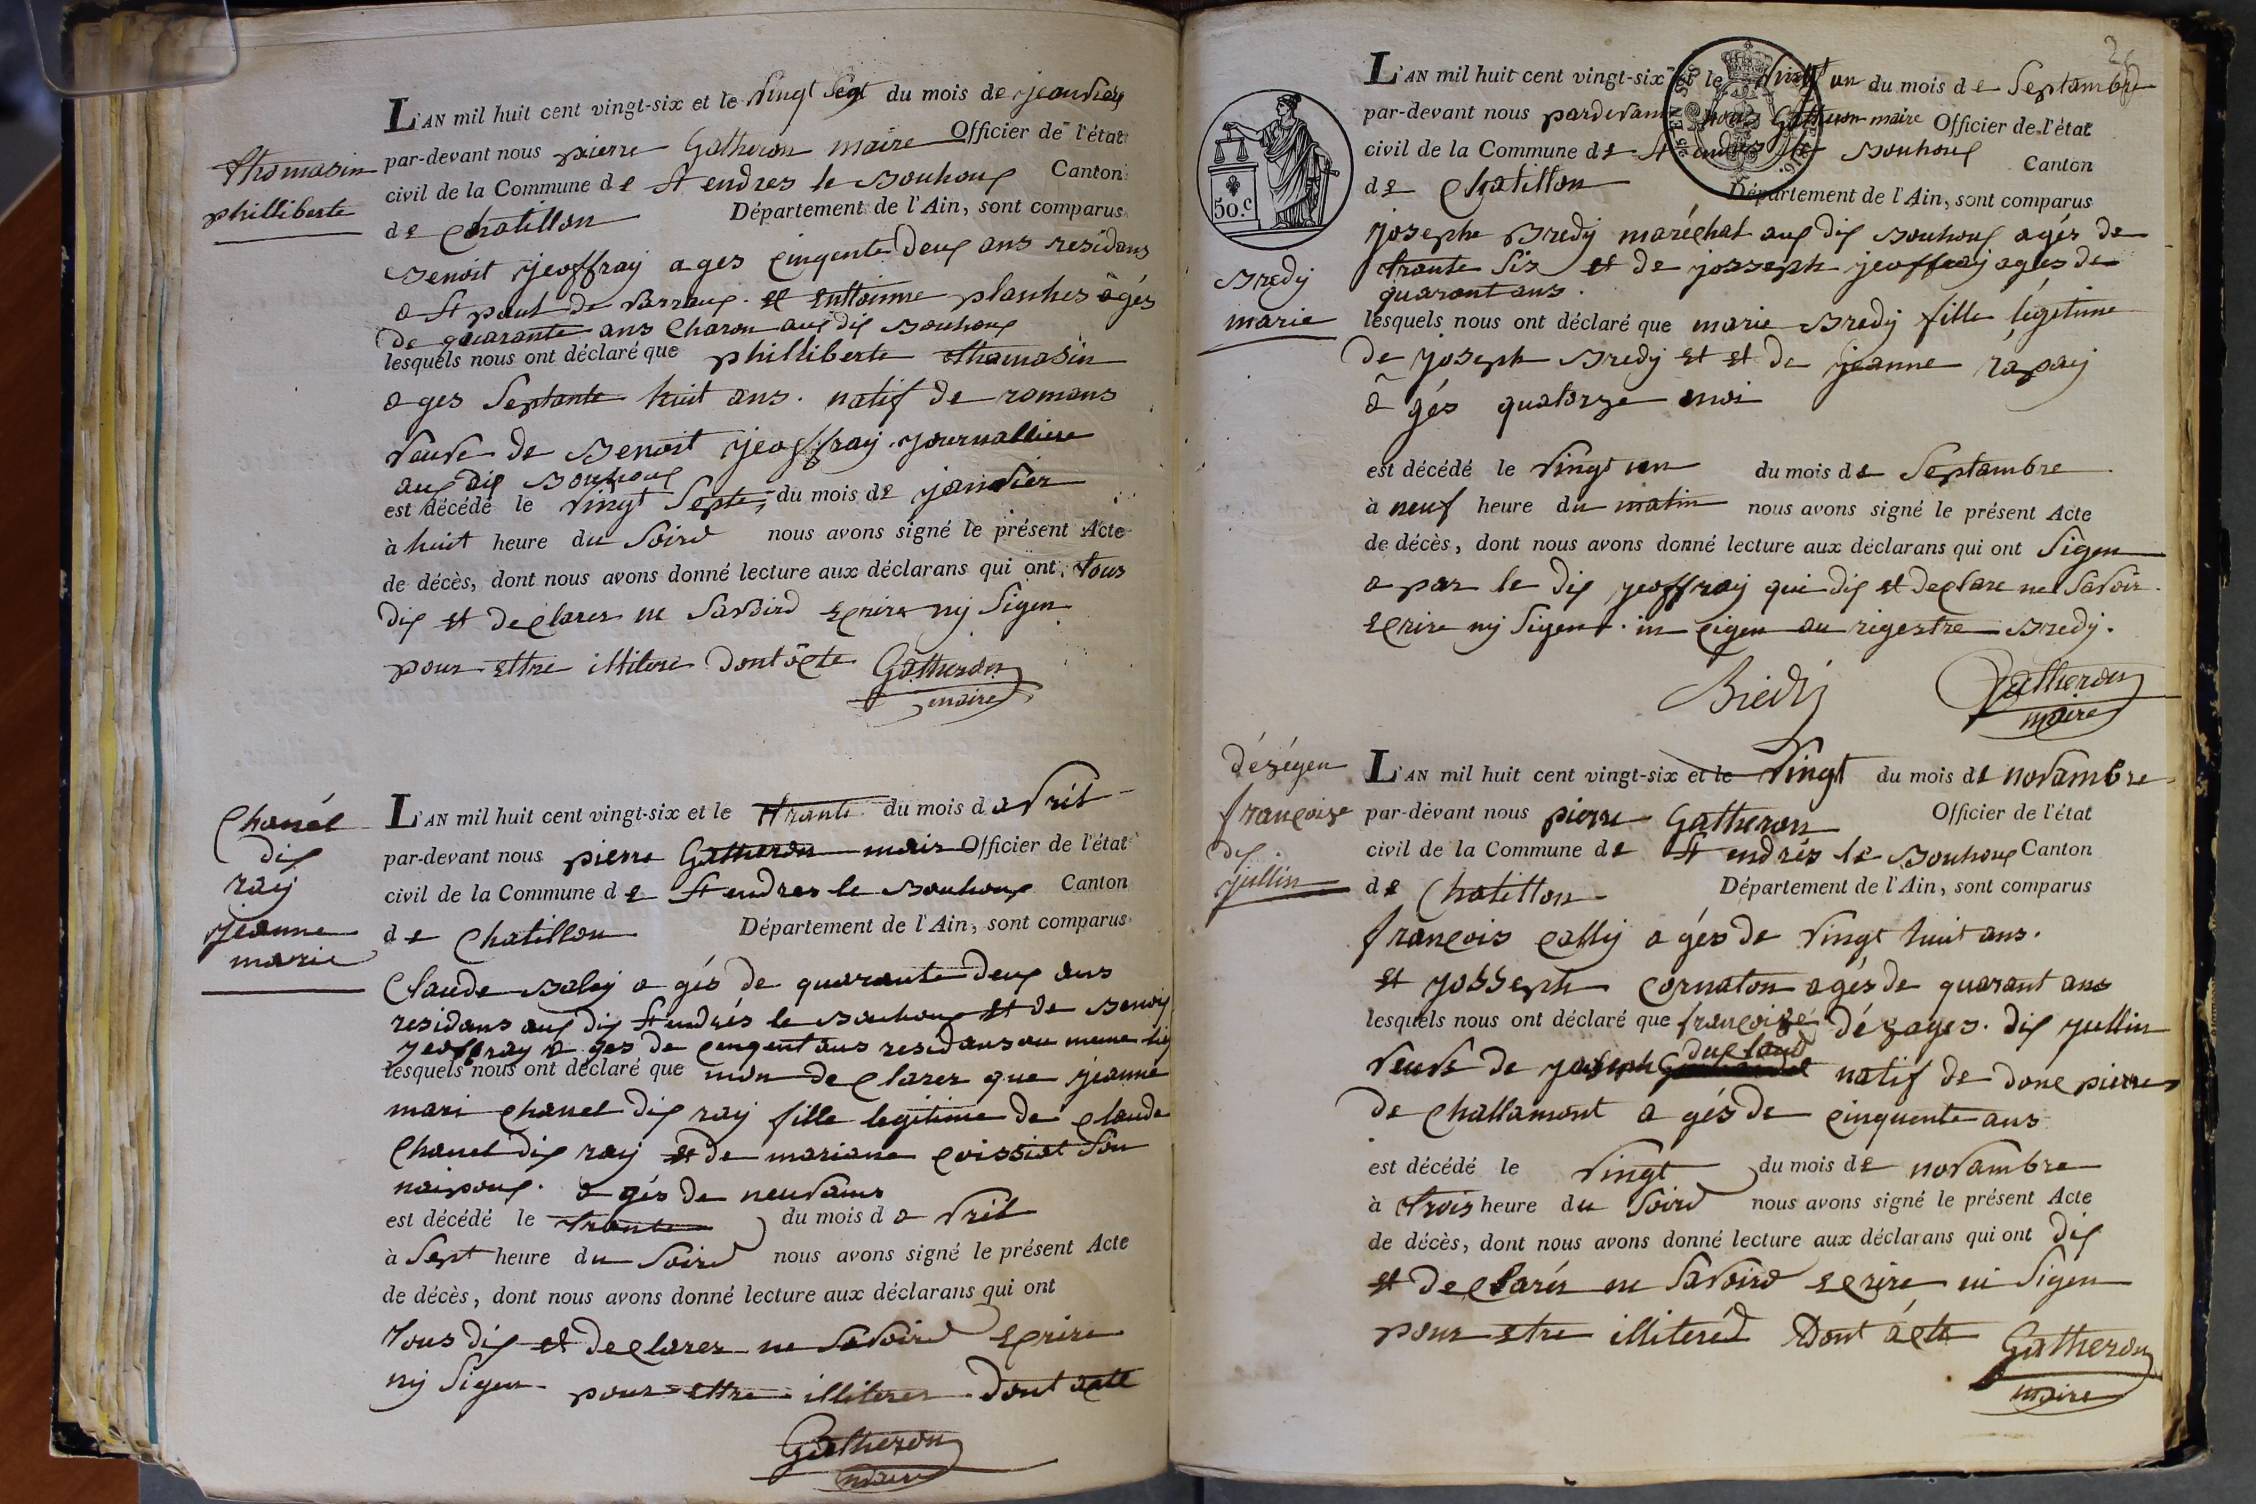 Thomasin
philliberte
L'AN mil huit cent vingt-six et le vingt sept du mois de jeanvier
par-devant nous pierre Gatheron maire Officier de l'état
civil de la Commune de St endres le Bouhoux Canton
de Chatillon Département de l'Ain, sont comparus
Benoit jeoffray ages cinqente deux ans residans
a St paul de varraux. et enttoinne planches âgés
de quarante ans Charon aux dis Bouhoux
lesquels nous ont déclaré que philliberte thomasin
ages septante huit ans. natif de romans
veuve de Benoit jeoffray journalliere
aux dis Bouhoux
est décédé le vingt septe du mois de janvier
à huit heure du soird nous avons signé le présent Acte
de décès, dont nous avons donné lecture aux déclarans qui ont tous
dis et declarer ne savoird ecrire nÿ sigen
pour ettre illitere dont acte Gatheron
maire
Chanel
dis
raÿ
jeanne
marie
L'AN mil huit cent vingt-six et le trante du mois d avril
par-devant nous pierre Gatheron mair Officier de l'état
civil de la Commune de St endres le Bouhoux Canton
de Chatillon Département de l'Ain, sont comparus
Claude Balaÿ a gés de quarante deux ans
residans aux dis St endrés le Bouhoux et de Benois
jeoffray a ges de cinqent ans residans au meme lis
lesquels nous ont déclaré que mon declarer que jeanne
mari chanel dis raÿ fille legitime de claude
Chanel dis raÿ et de mariane coissiat son
naipoux. a gés de neuvans
est décédé le trante du mois d avril
à sept heure du soird nous avons signé le présent Acte
de décès, dont nous avons donné lecture aux déclarans qui ont
tous dis et declarer ne savoird ecrire
nÿ sigen pour ettre illiterer dont acte
Gatheron
maire
50.c
L'AN mil huit cent vingt-six le vingt un du mois de Septambre
par-devant nous pardevant nous Gatheron maire Officier de l'état
civil de la Commune de St endres le Bouhoux Canton
de Chatillon Département de l'Ain, sont comparus
Bredÿ
marie
josephe Bredÿ maréchal aux dis Bouhoux agés de
trante six et de josseph jeoffraÿ agés de
quarant ans.
lesquels nous ont déclaré que marie Bredÿ fille légitime
de joseph Bredÿ et et de jeanne rapaÿ
a gés quatorze moi
est décédé le vingt un du mois de Septambre
à neuf heure du matin nous avons signé le présent Acte
de décès, dont nous avons donné lecture aux déclarans qui ont sigen
a par le dis jeoffraÿ qui dis et declare ne savoir
ecrire nÿ sigen. in cigen au rigestre Bredÿ.
Brédÿ Gatheron
maire
dézégen
françoise
dis
jullin
L'AN mil huit cent vingt-six et le vingt du mois de novambre
par-devant nous pierre Gatheron Officier de l'état
civil de la Commune de St endrés le Bouhoux Canton
de Chatillon Département de l'Ain, sont comparus
françois callÿ a gés de vingt huit ans.
et josseph cornaton agés de quarant ans
lesquels nous ont déclaré que françoise dézages. dis jullin
duclaud
veuve de joseph natif de donc pierres
de Challamont a gés de cinquente ans
est décédé le vingt du mois de novambre
à trois heure du soird nous avons signé le présent Acte
de décès, dont nous avons donné lecture aux déclarans qui ont dis
et declarér ne savoird ecrire ni sigen
pour etre illiteréd Dont acte Gatheron
maire